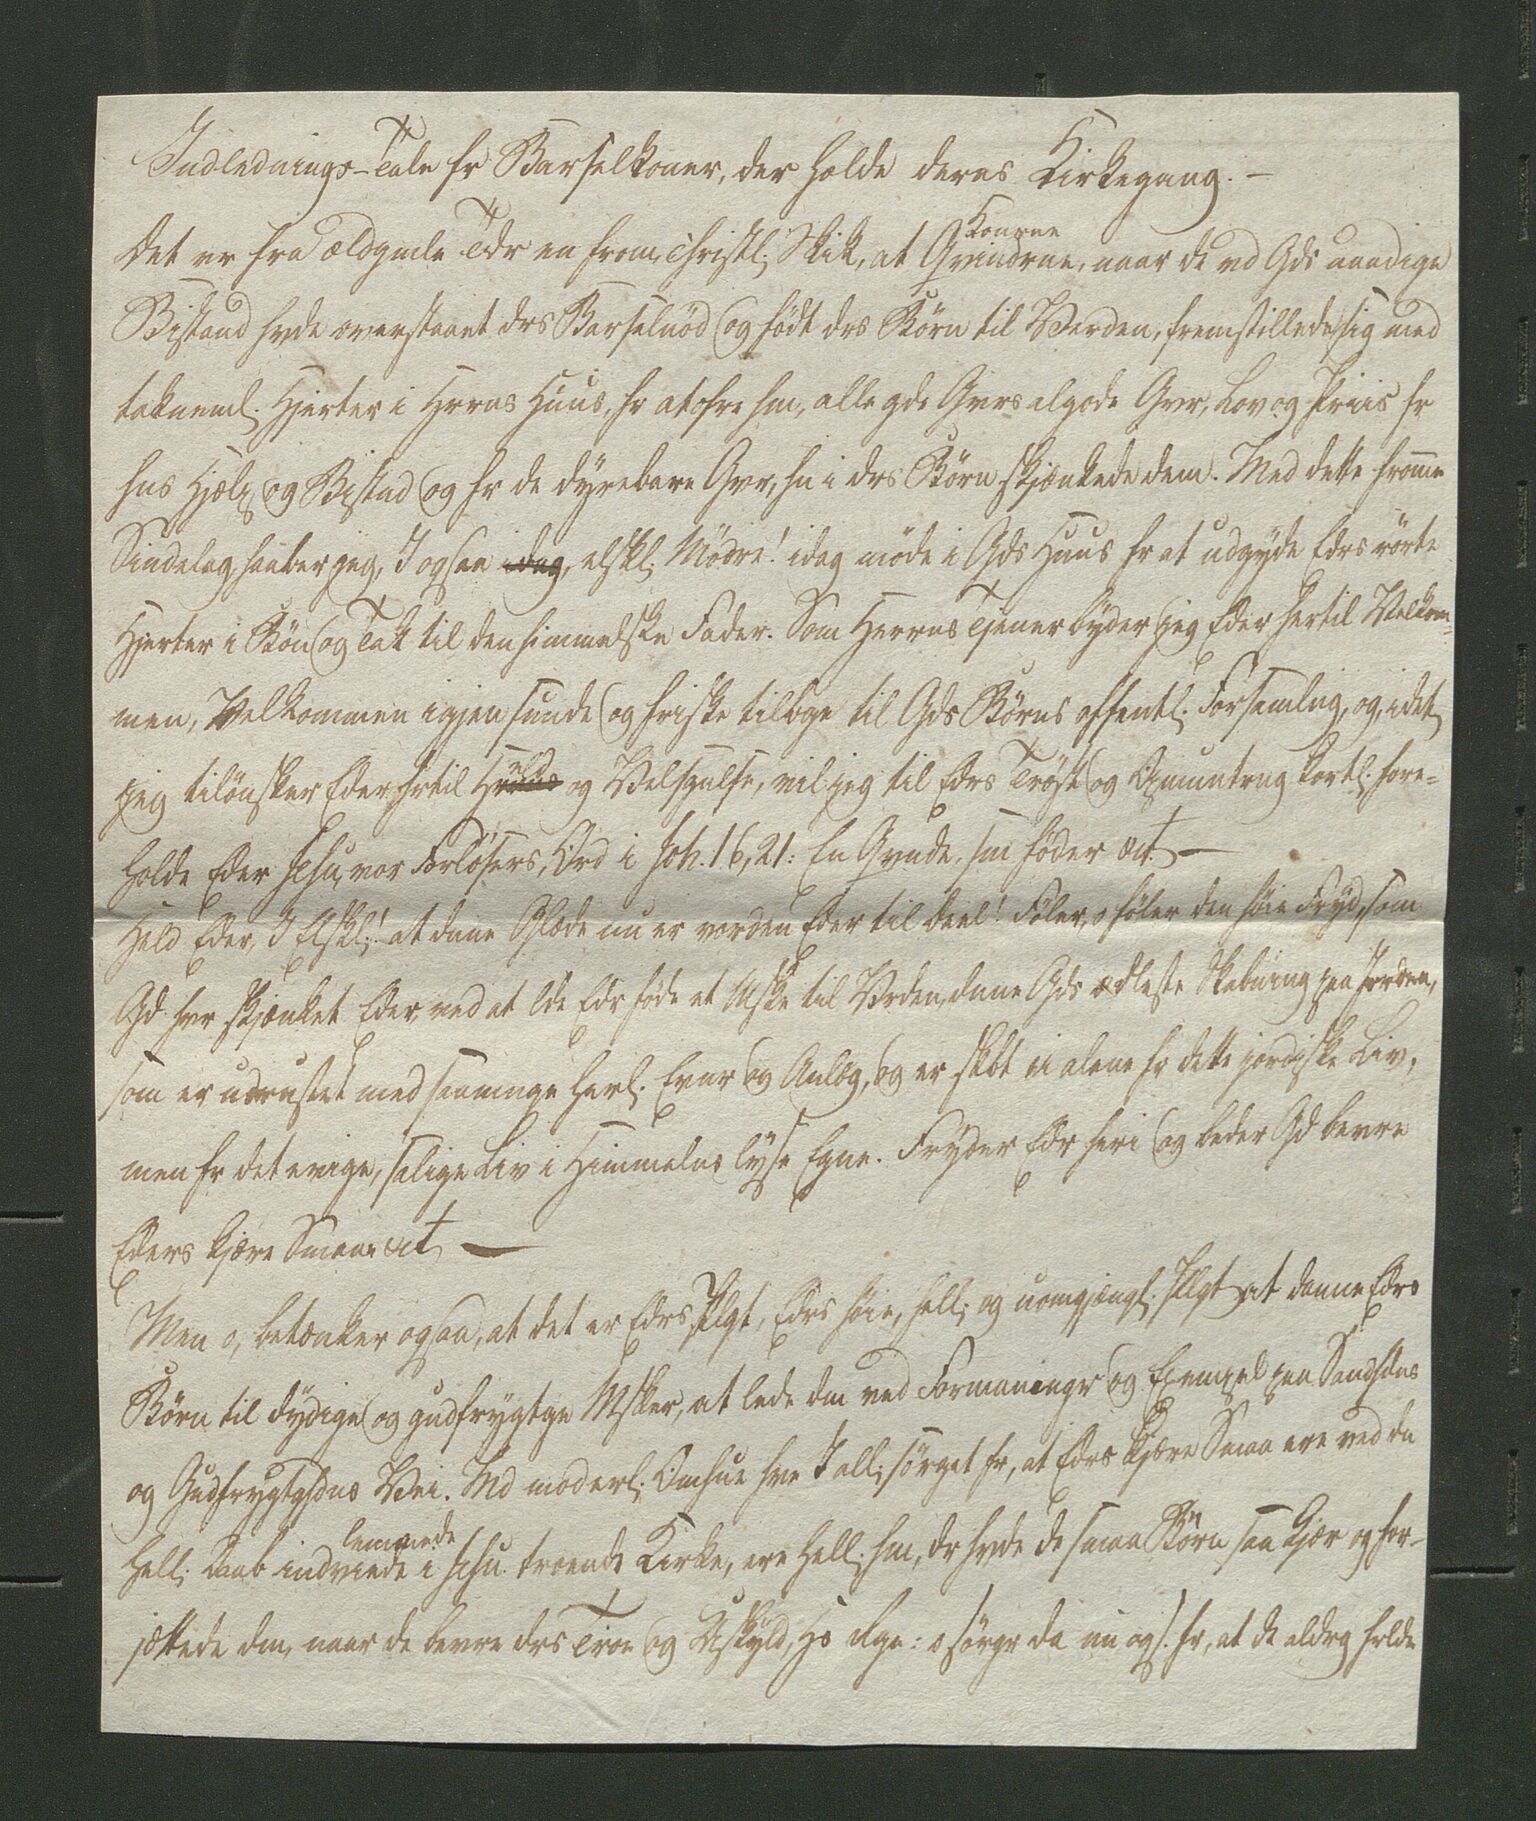 Indlednings-Tale fr Barselkoner, der holde deres Kirkegang. –
Det er fra ældgmle Tdr en from, christl. Skik, at Qvindrne, naar de vd Gds naadige
Konerne
Bistand hvde overstaaet drs Barselnöd og födt drs Börn til Verden, fremstillede sig med
takneml. Hjerter i Hrrns Huus, fr at ofre hm, alle gde Gvrs algode Gvr, Lov og Priis fr
hns Hjelp og Bistad og fr de dyrebare Gvr, hn i drs Börn skjænkede dem. Med dette fromme
Sindelag haaber jeg, I ogsaa idag, elskl. Mödre! idag möde i Gds Huus fr at udgyde Edrs rörte
Hjerter i Bön og Tak til den himmelske Fader. Som Herrns Tjener byder jeg Eder hertil Velkom-
men, Velkommen igjen sunde og friske tilbge til Gds Börns offentl. Forsamlng, og, idet
jeg tilönsker Eder hrtil og Velsgnlse, vil jeg til Edrs Tröst og Opmuntrng kortl. fore-
holde Eder Jesu, vor Forlösers, Ord i Joh. 16,21: En Qvnde, sm föder &ct. –
Held Eder, I Elskl.! at dnne Glæde nu er vorden Eder til Deel! Föler, o föler den höie Fryd, som
Gd hvr skjænket Eder ved at lde Edr föde et Mske til Vrden, dnne Gds ædleste Skabning paa Jorden,
som er udrustet med saamnge herl. Evnr og Anlæg, og er skbt ei alene fr dette jordiske Liv,
men fr det evige, salige Liv i Himmelns lyse Egne. Fryder Edr heri og beder Gd bevre
Eders kjære Smaae &ct –
Men o, betænker ogsaa, at det er Edrs Plgt, Edrs höie, hell. og uomgjængl. Plgt at danne Edrs
Börn til dydige og gudfrygtge Msker, at lede dm ved Formaningr og Exempel paa Sandhdns
og Gudfrygtghdns Vei. Md moderl. Omhue hve I all. sörget fr, at Edrs kjære Smaa ere ved dn
hell. Daab indviede i Jesu troende Kirke, ere hell. hm, dr hvde de smaa Börn saa kjær og for-
lemmede
jættede dm, naar de bevre drs Troe og Uskyld, Hs Rge: o sörgr da nu ogs. fr, at de aldrg holde